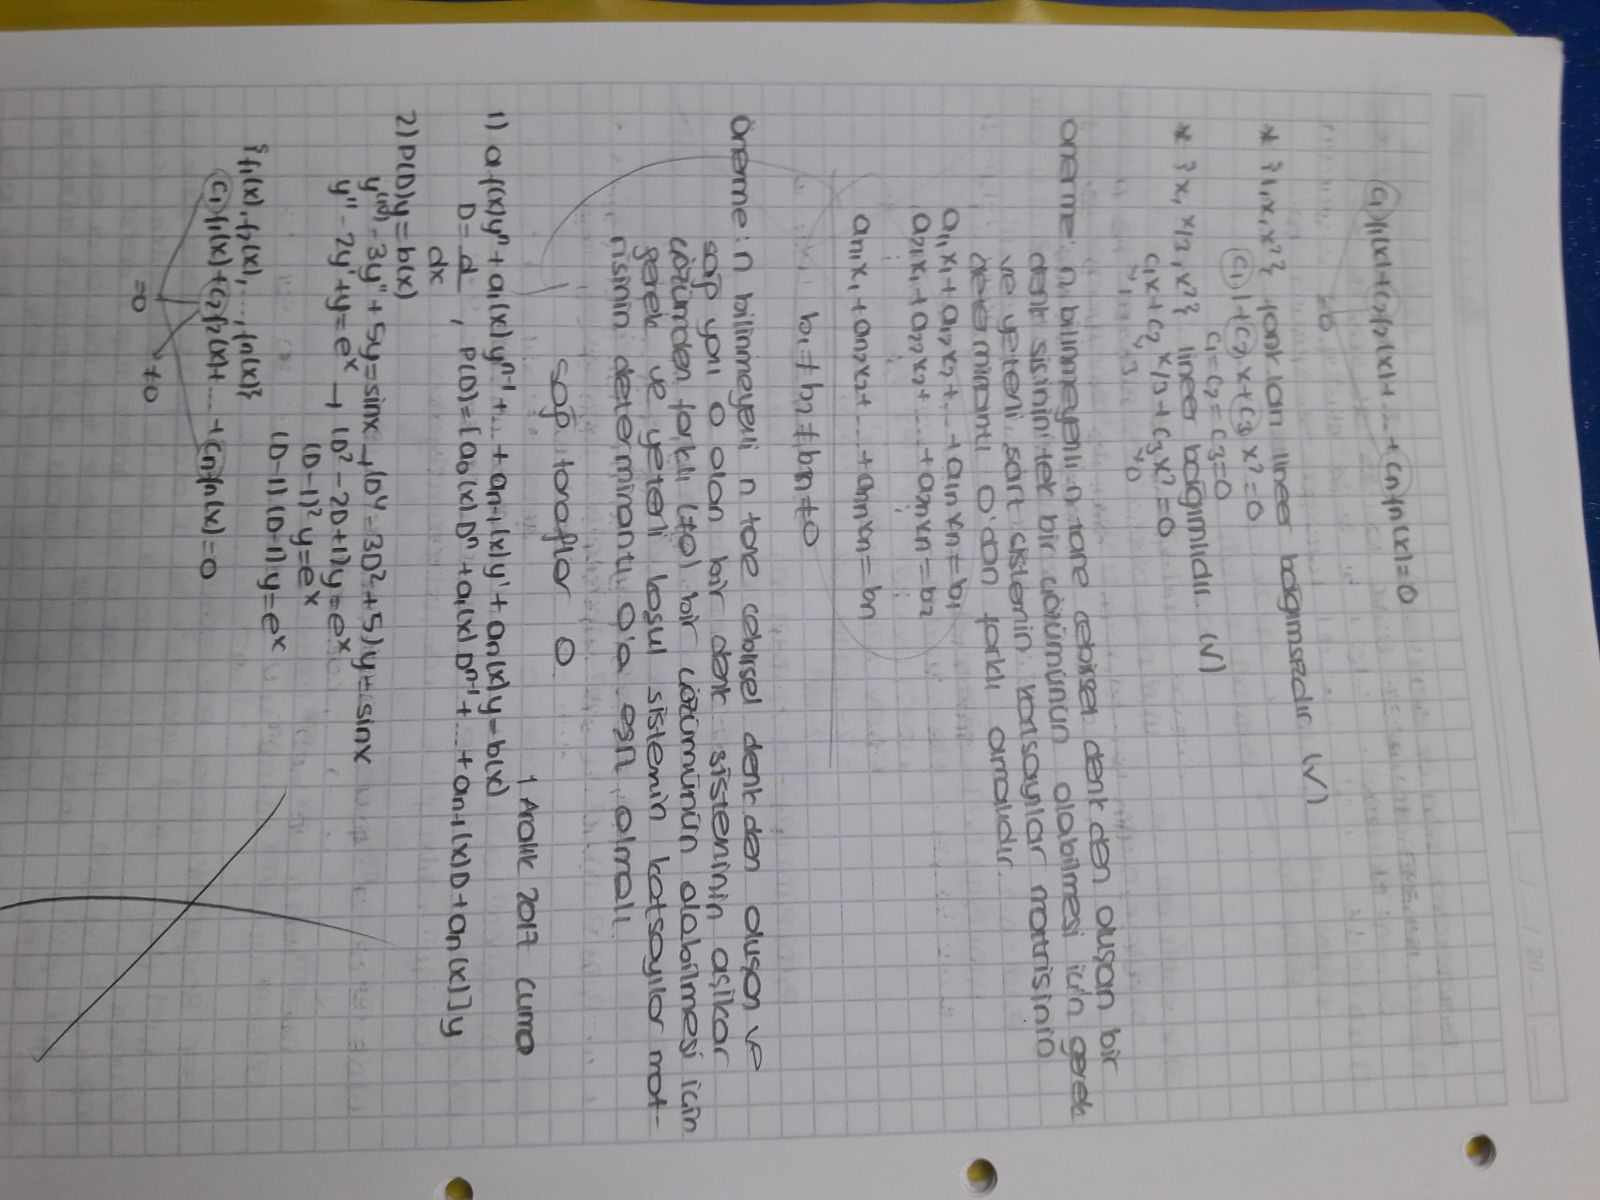 _ / _ / 20 _
c₁f₁(x)+c₂f₂(x)+...+cnfn(x)=0
=0
* {1, x, x²} fonk ları lineer bağımsızdır. (√)
c₁1+c₂x+c₃x²=0
c₁=c₂=c₃=0
* {x, x/3, x²} lineer bağımlıdır. (√)
c₁x+c₂x/3+c₃x²=0
önerme: n bilinmeyenli n tane cebirsel denk den oluşan bir
denk sisinin tek bir çözümünün olabilmesi için gerek
ve yeterli şart sistemin katsayılar matrisinin
determinantı 0'dan farklı olmalıdır.
a₁₁x₁+a₁₂x₂+...+a₁nxn=b₁
a₂₁x₁+a₂₂x₂+...+a₂nxn=b₂
⋮ ⋮ ⋮ ⋮
an₁x₁+an₂x₂+...+annxn=bn
b₁≠b₂≠bn≠0
önerme: n bilinmeyenli n tane cebirsel denk den oluşan ve
sağ yanı 0 olan bir denk sisteminin aşikar
çözümden farklı (≠0) bir çözümünün olabilmesi için
gerek ve yeterli koşul sistemin katsayılar mat-
risinin determinantı 0'a eşit olmalı.
sağ taraflar 0
1 Aralık 2017 Cuma
1) a₀(x)yⁿ+a₁(x)yⁿ⁻¹+...+an-1(x)y'+an(x)y=b(x)
D=d/dx, P(D)=[a₀(x)Dⁿ+a₁(x)Dⁿ⁻¹+...+an-1(x)D+an(x)]y
2) P(D)y=b(x)
y⁽ᴵⱽ⁾-3y''+5y=sinx → (D⁴-3D²+5)y=sinx
y''-2y'+y=eˣ → (D²-2D+1)y=eˣ
(D-1)²y=eˣ
(D-1)(D-1)y=eˣ
{f₁(x), f₂(x), ..., fn(x)}
c₁f₁(x)+c₂f₂(x)+...+cnfn(x)=0
=0 ≠0